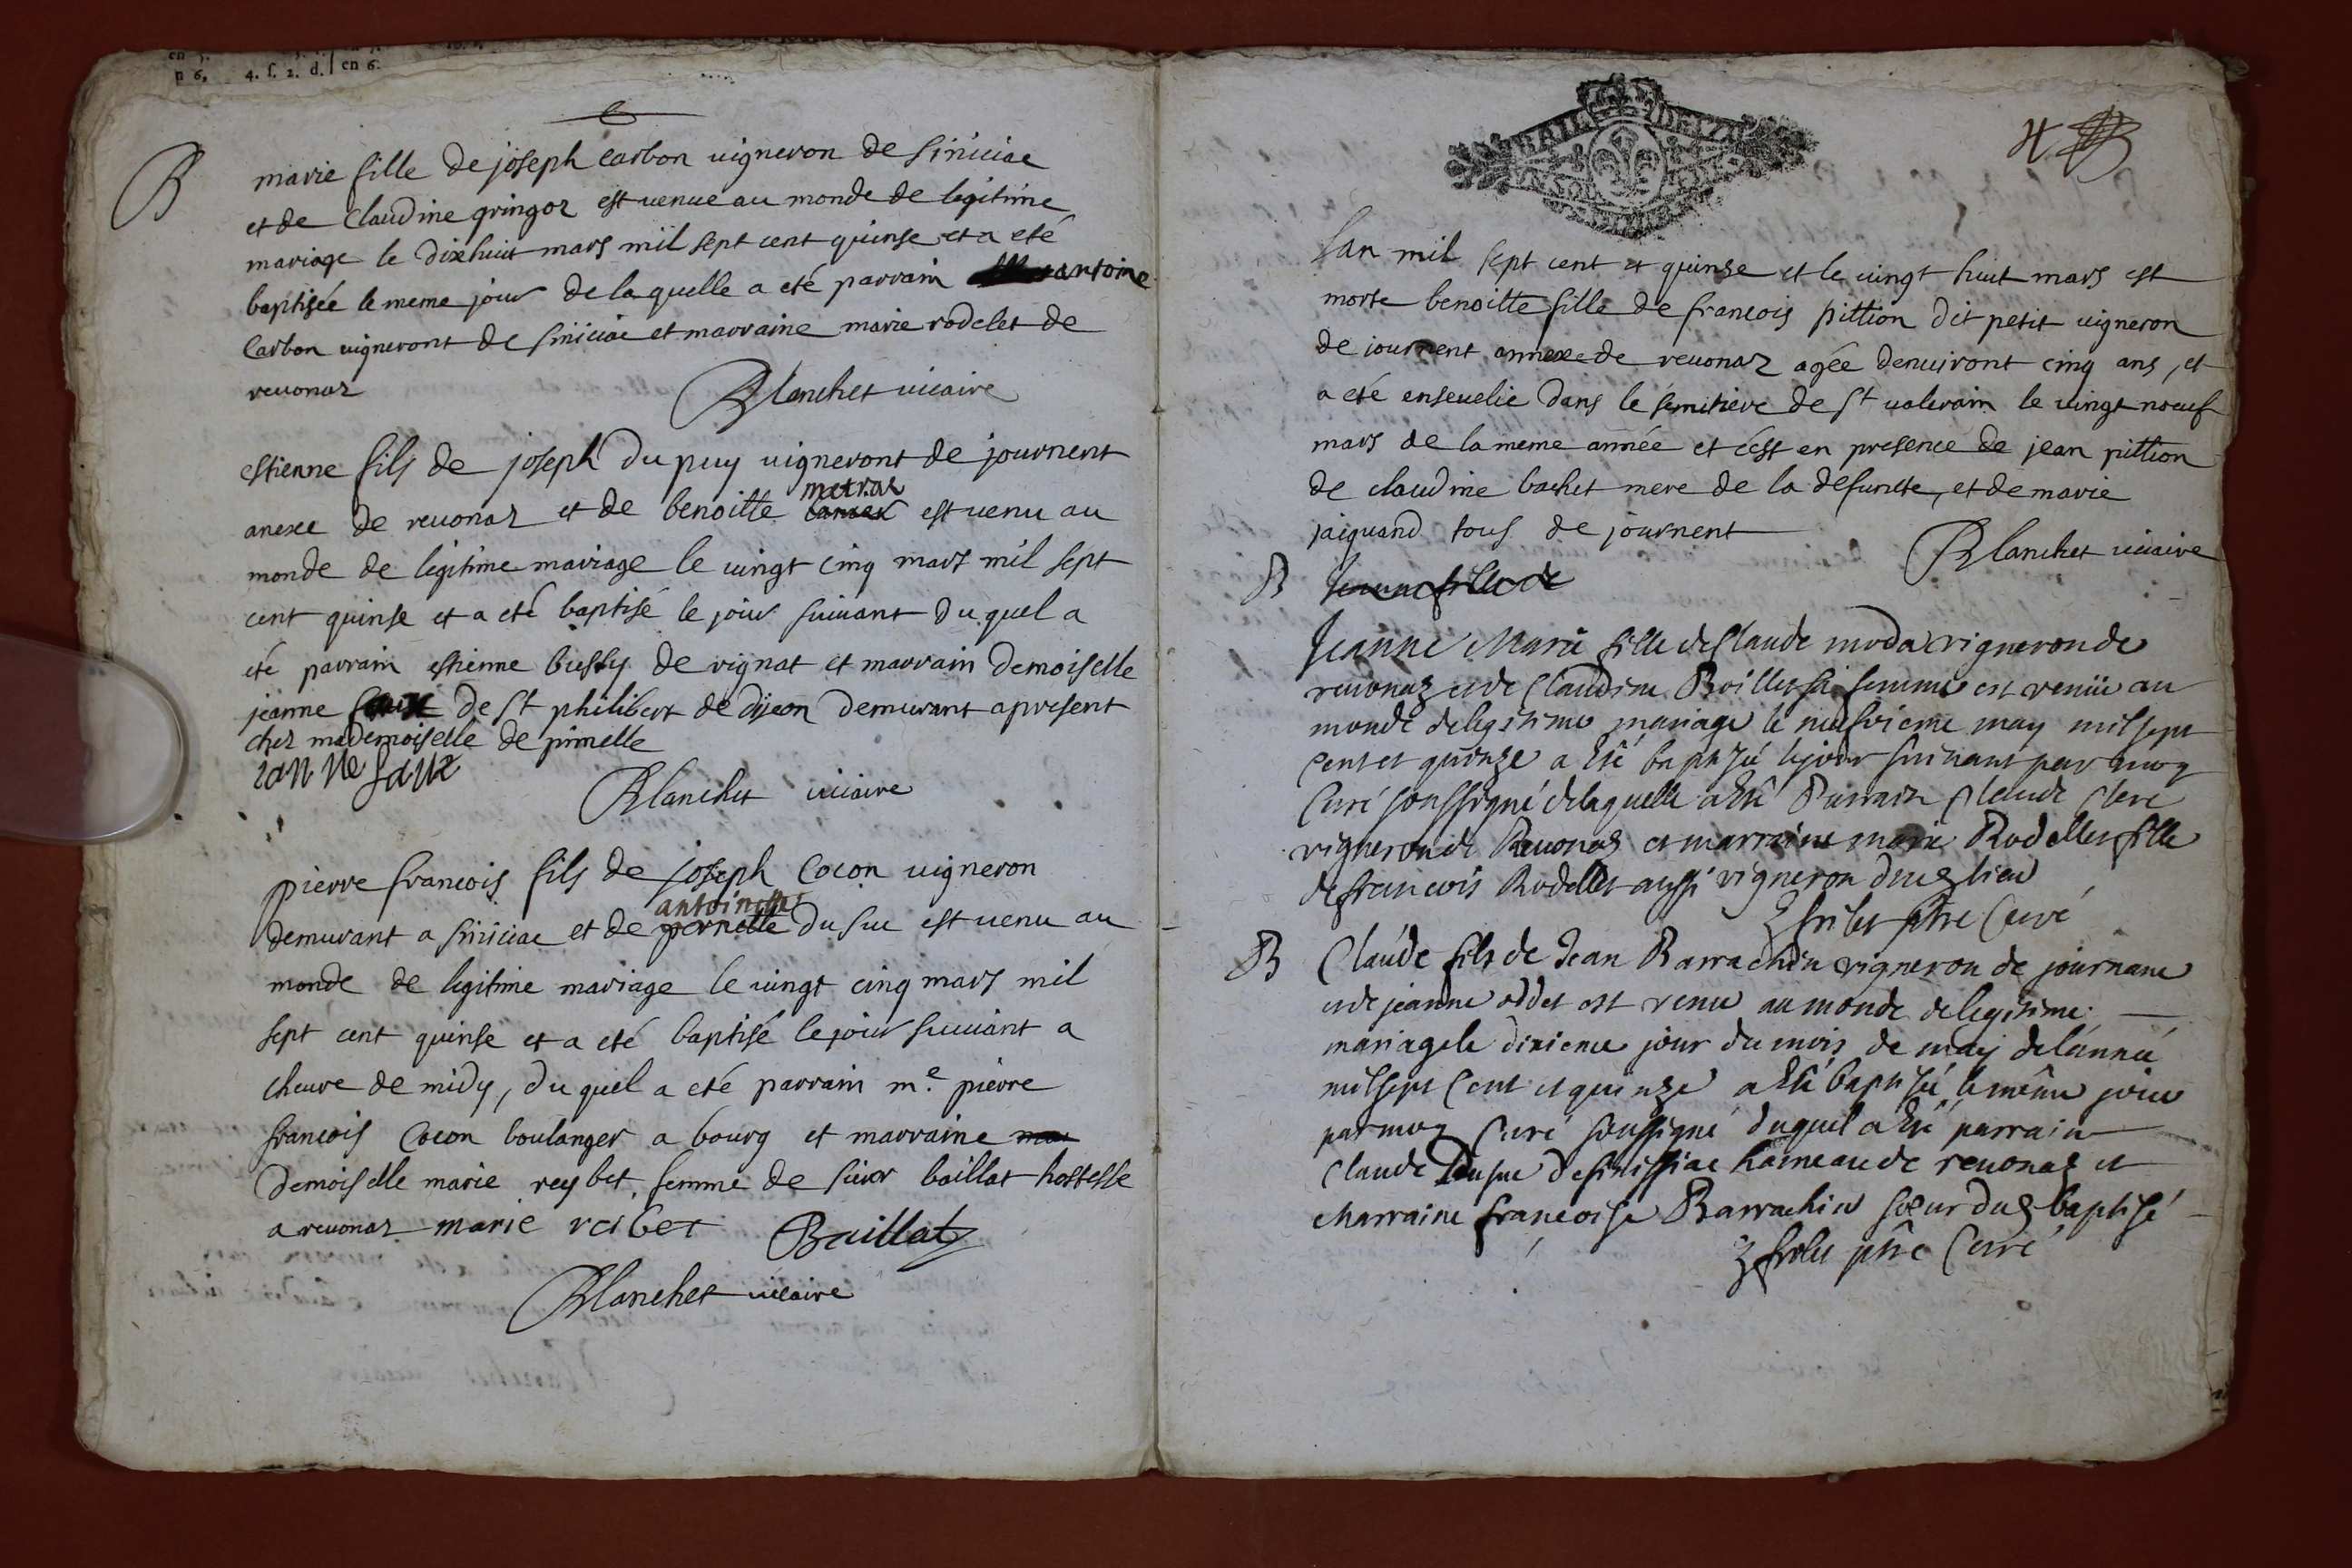 n 6, 4. s. 2. d. en 6.
B
marie fille de joseph carbon uigneron de siniciac
et de claudine gringoz est uenue au monde de legitime
mariage le dixhuit mars mil sept cent quinse et a eté
baptisée le meme jour de la quelle a eté parrain antoine
carbon uigneront de siniciac et marraine marie rodelet de
reuonaz
Blanchet uicaire
estienne fils de joseph du puy uigneront de journent
anexe de reuonaz et de benoitte metraz est uenu au
monde de legitime mariage le uingt cinq mars mil sept
cent quinse et a eté baptisé le jour suiuant du quel a
eté parrain estienne bussy de rignat et marrain demoiselle
jeanne de st philibert de dijeon demurant apresent
chez mademoiselle de pimelle
ianne saux
Blanchet uicaire
pierre francois fils de joseph cocon uigneron
demurant a siniciac et de pernette antoinette du suc est uenu au
monde de legitime mariage le uingt cinq mars mil
sept cent quinse et a eté baptisé le jour suiuant a
cheure de midy, du quel a eté parrain me. pierre
francois cocon boulanger a bourg et marraine
demoiselle marie reybet femme de sieur baillat hostesse
a reuonaz marie reibet Baillat
Blanchet uicaire
4
lan mil sept cent et quinse et le uingt huit mars est
morte benoitte fille de francois pittion dit petit uigneron
de journent annexe de reuonaz agée denuiront cinq ans, et
a eté enseuelie dans le semitiere de st ualerain le uingt noeuf
mars de la meme année et cest en presence de jean pittion
de claudine bachet mere de la defuncte, et de marie
jaiquand tous de journent
Blanchet uicaire
B Jeanne fille de
Jeanne Marie fille de Claude moda vigneron de
reuonaz et de Claudine Boillet sa femme est venüe au
monde de legitime mariage le neufvieme may mil sept
cent et quinze a esté baptisée le jour suivant par moy
Curé soussigné de laquelle a esté Parrain Claude Clerc
vigneron de Reuonaz et marraine marie Rodellet fille
de francois Rodellet aussi vigneron dud lieu
ptre Curé
B
Claude fils de Jean Barrachin vigneron de journans
et de jeanne oddet est venu au monde de legitime
mariage le dixieme jour du mois de may de lannée
mil sept Cent et quinze a esté baptisé le même jour
par moy Curé soussigné duquel a esté parrain
Claude Dusuc de sinissiac hameau de reuonaz et
Marraine francoise Barrachin soeur dud baptisé
ptre Curé